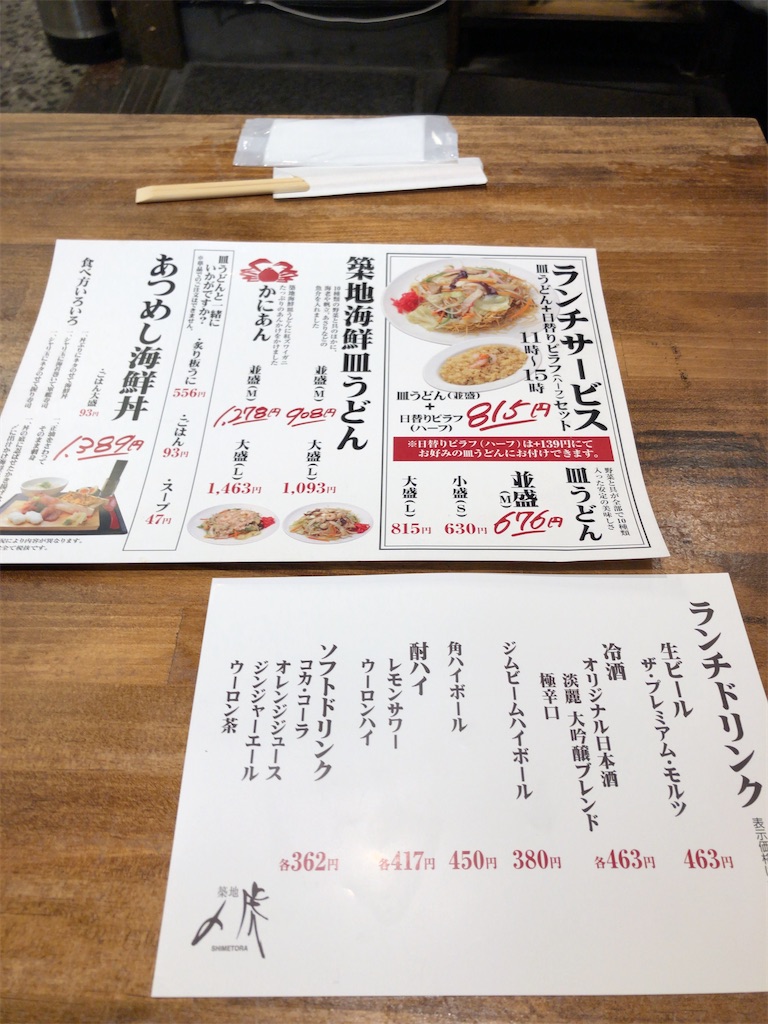 ランチサービス
皿うどん+日替りピラフ(ハーフ)セット
11時〜15時
皿うどん(並盛)
+
日替りピラフ
(ハーフ)
815円
※日替りピラフ(ハーフ)は+139円にて
お好みの皿うどんにお付けできます。
皿うどん
野菜と具が全部で10種類
入った安定の美味しさ
並盛(M)
676円
小盛(S)
630円
大盛(L)
815円
築地海鮮皿うどん
10種類の野菜と具のほかに、
海老や帆立、あさりなどの
魚介を入れました
並盛(M)
908円
大盛(L)
1,093円
かにあん
築地海鮮皿うどんに紅ズワイガニ
たっぷりのあんかけをかけました
並盛(M)
1,278円
大盛(L)
1,463円
皿うどんと一緒に
いかがですか?
※単品でのご注文はできません。
・炙り板うに
556円
・ごはん
93円
・スープ
47円
あつめし海鮮丼
1,389円
・ごはん大盛
93円
食べ方いろいろ
ランチドリンク
生ビール
ザ・プレミアム・モルツ
463円
冷酒
オリジナル日本酒
淡麗 大吟醸ブレンド
極辛口
各463円
ジムビームハイボール
380円
角ハイボール
450円
酎ハイ
レモンサワー
ウーロンハイ
各417円
ソフトドリンク
コカ・コーラ
オレンジジュース
ジンジャーエール
ウーロン茶
各362円
築地
〆虎
SHIMETORA